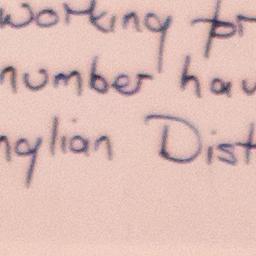 working pr
number hav
nglian Dist